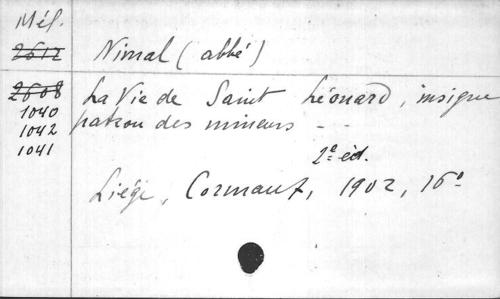 Mél.
2612 Nimal (abbé)
2608 La Vie de Saint Léonard, insigne
1040 patron des mineurs - -
1042
1041 2e éd.
Liège, Cormaux, 1902, 16°